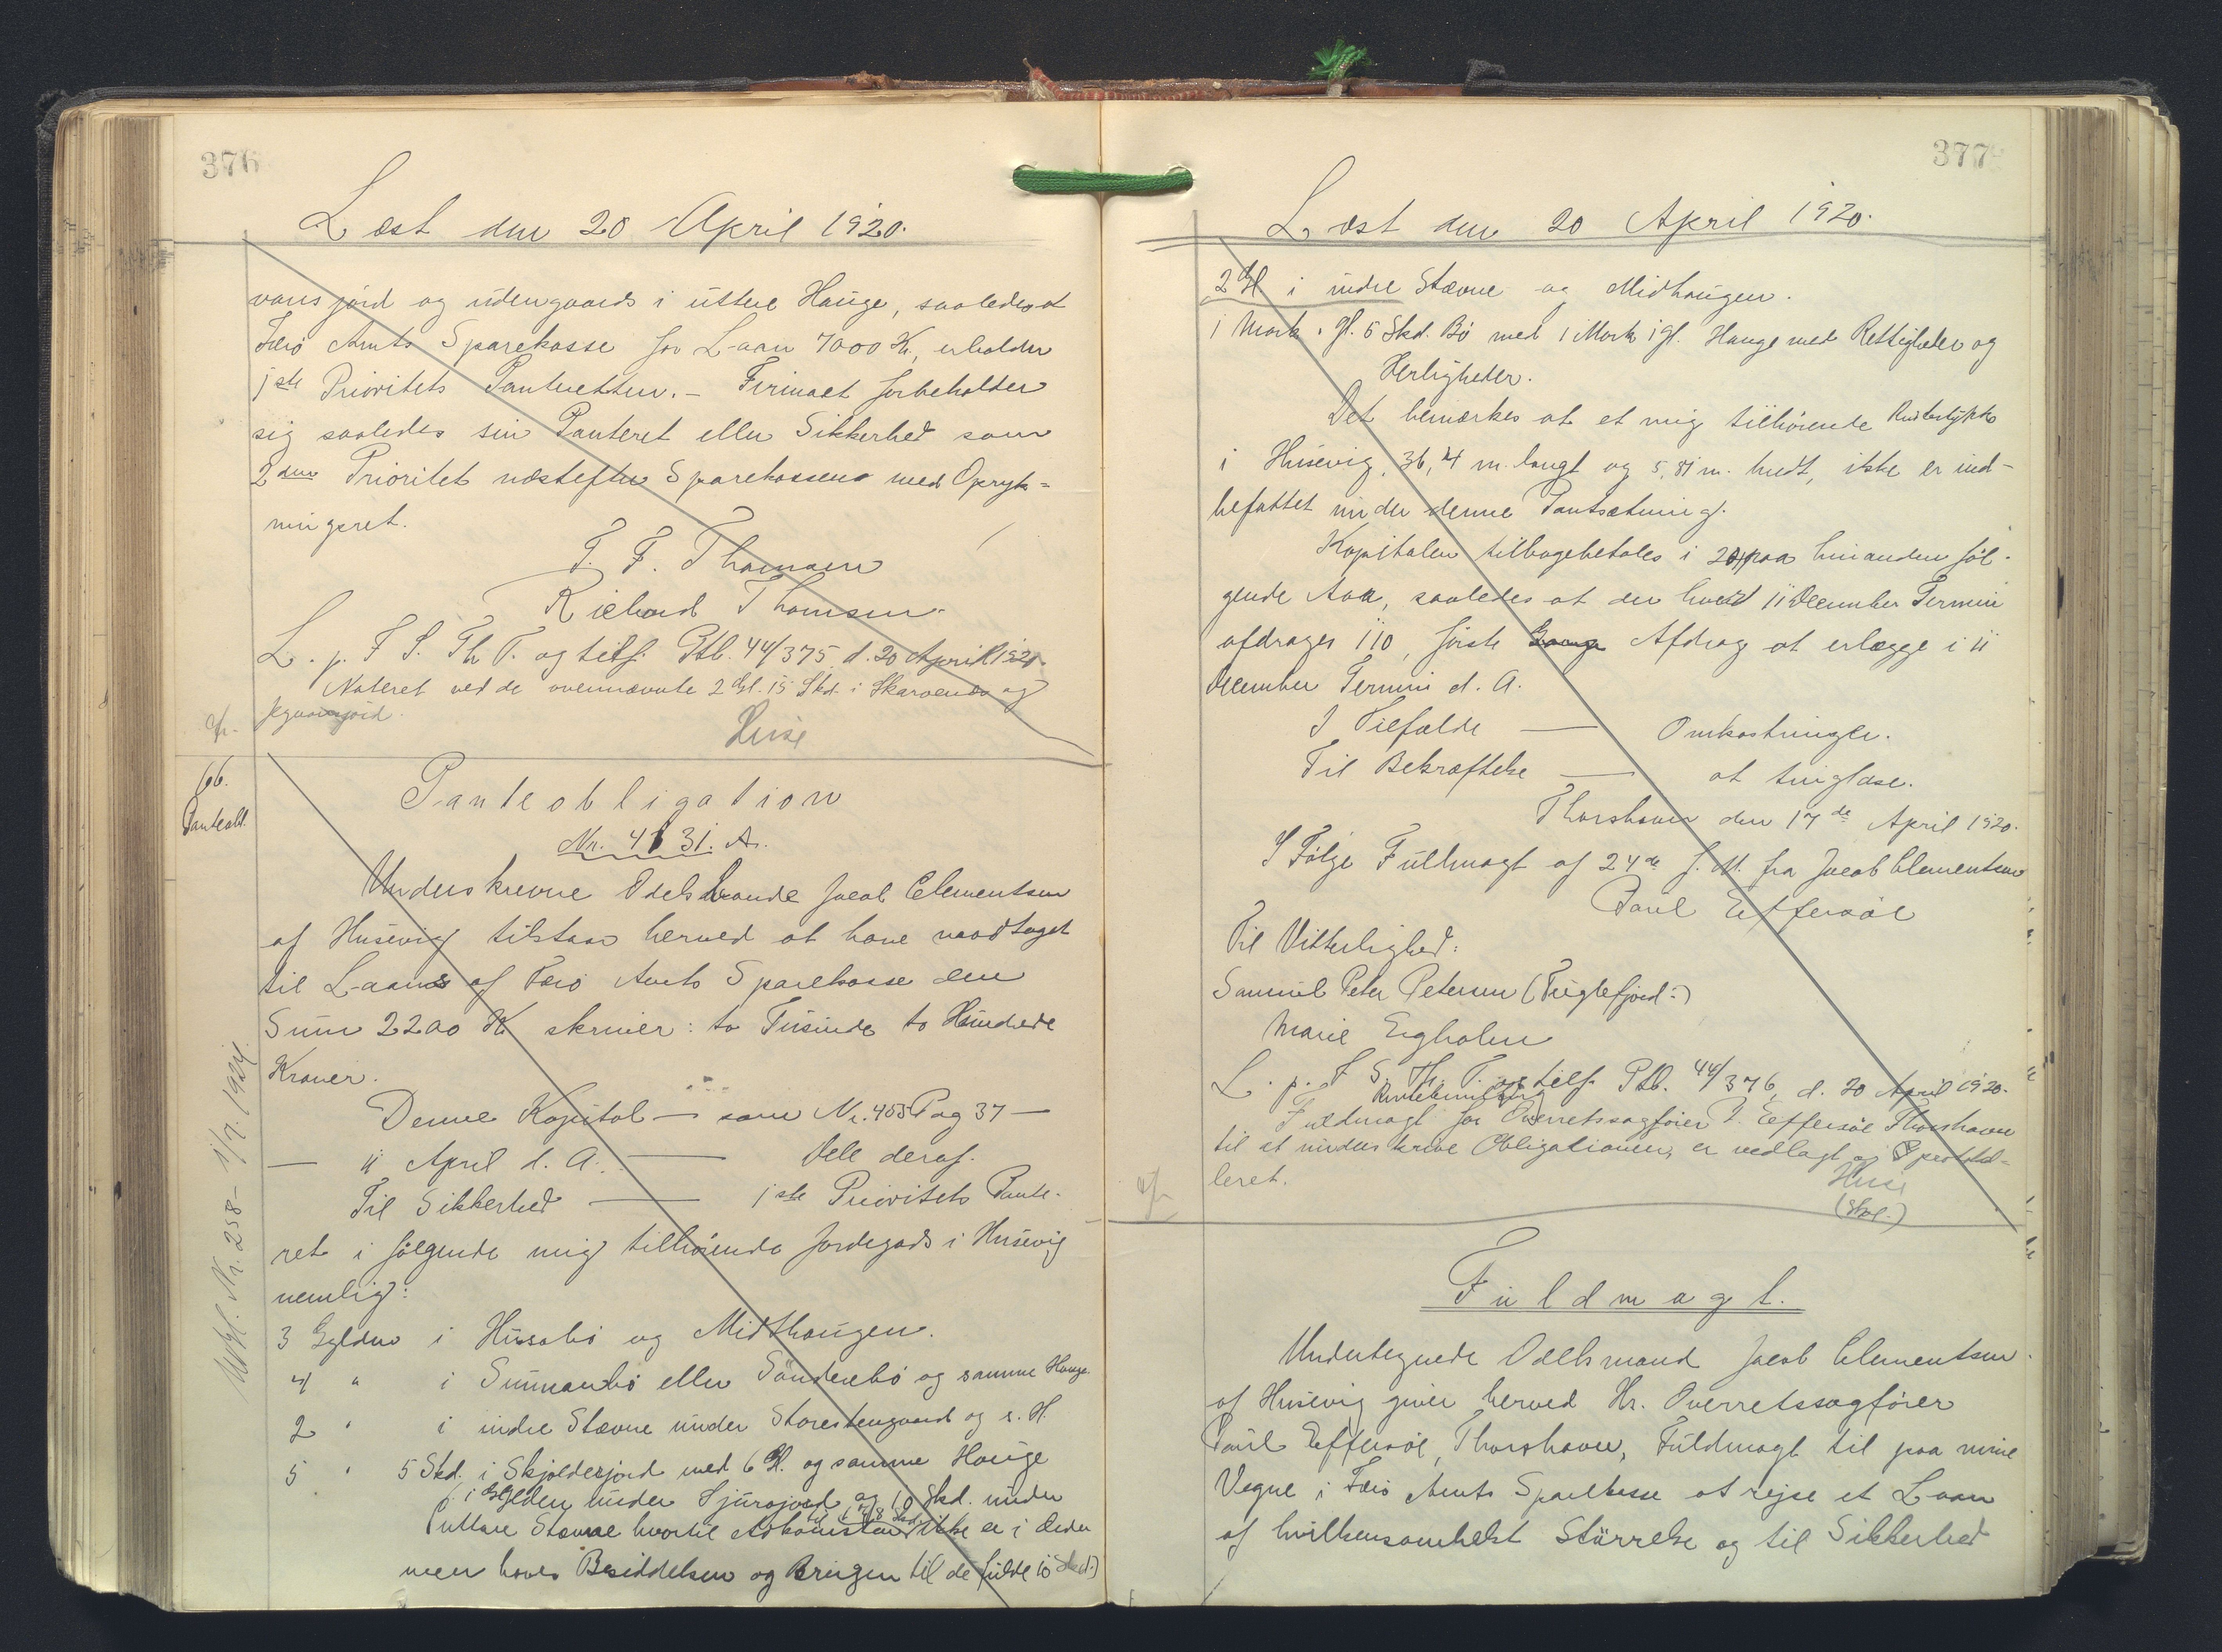 376
Læst den 20 April 1920.
vons jord og udengaards i uttere Hauge, saaledes at
Færø Amts Sparekasse for Laan 7000 Kr. erholder
1ste Prioritets Panteretten. – Firmaet forbeholder
sig saaledes sin Panteret eller Sikkerhed som
2den Prioritet næstefter Sparekassens med Opryk=
ningsret.
T. F. Thomsen
Richard Thomsen.
L. p. F. S. Th T. og tilf. Ptb. 44/375 d. 20 April 1920.
Noteret ved de ovennævnte 2 Gl. 15 Skd. i Skarvenes og
66.
Panteobl.
Panteobligation
Nr. 4131. A.
Underskrevne Odelsbonde Jacob Clementsen
af Husevig tilstaar herved at have modtaget
til Laans af Færø Amts Sparekasse den
Sum 2200 Kr skriver: to Tusinde to Hundrede
Kroner.
Denne Kapital — som Nr. 453 Pag 37 —
— 11 April d. A. — Dele deraf.
Til Sikkerhed — 1ste Prioritets Pante-
ret i følgende mig tilhørende Jordegods i Husevig
nemlig:
3 Gylden i Husabø og Midthaugen.
4 " i Sunnanbø eller Sönderbø og samme Hauge
2 " i indre Stævne under Storestengaard og s. H.
5 " 5 Skd. i Skjoldesjord med 6 Gl. og samme Hauge
(i Gylden under Hjürsjord og 10 Skd. under
uttare Stævne hvortil Adkomsten til 1 7/8 Skd. ikke er i Orden
men haves Besiddelsen og Brugen til de fulde 10 Skd.)
Udsl. Nr. 258 – 1/7. 1924.
377
Læst den 20 April 1920.
2 Gl. i indre Stævne og Midhaugen.
1 Mark 1 Gl. 5 Skd. Bø med 1 Mark 1 Gl. Hauge med Rettigheder og
Herligheder.
Det bemærkes at et mig tilhørende
i Husevig, 36,4 m. langt og 5,81 m. bredt, ikke er ind-
befattet under denne Pantsætning.
Kapitalen tilbagebetales i 20 paa hinanden føl-
gende Aar, saaledes at der hver 11 December Termin
afdrages 110, første Afdrag at erlægge i 11
December Termin d. A.
I Tilfælde — Omkostninger.
Til Bekræftelse — at tinglæse.
Thorshavn den 17de April 1920.
I Følge Fuldmagt af 24de f. M. fra Jacob Clementsen
Poul Effersøe
Til Vitterlighed:
Samuel Peter Petersen (Fuglefjord:)
Marie Egholm
L. p. F S. Th. T. og tilf. Ptb. 44/376, d. 20 April 1920.
Fuldmagt for Overretssagfører P. Effersøe Thorshavn
til at underskrive Obligationen, er vedlagt og protokol=
leret.
Fuldmagt.
Undertegnede Odelsmand Jacob Clementsen
af Husevig giver herved Hr. Overretssagfører
Poul Effersøe, Thorshavn, Fuldmagt til paa mine
Vegne i Færø Amts Sparekasse at rejse et Laan
af hvilkensomhelst Størrelse og til Sikkerhed